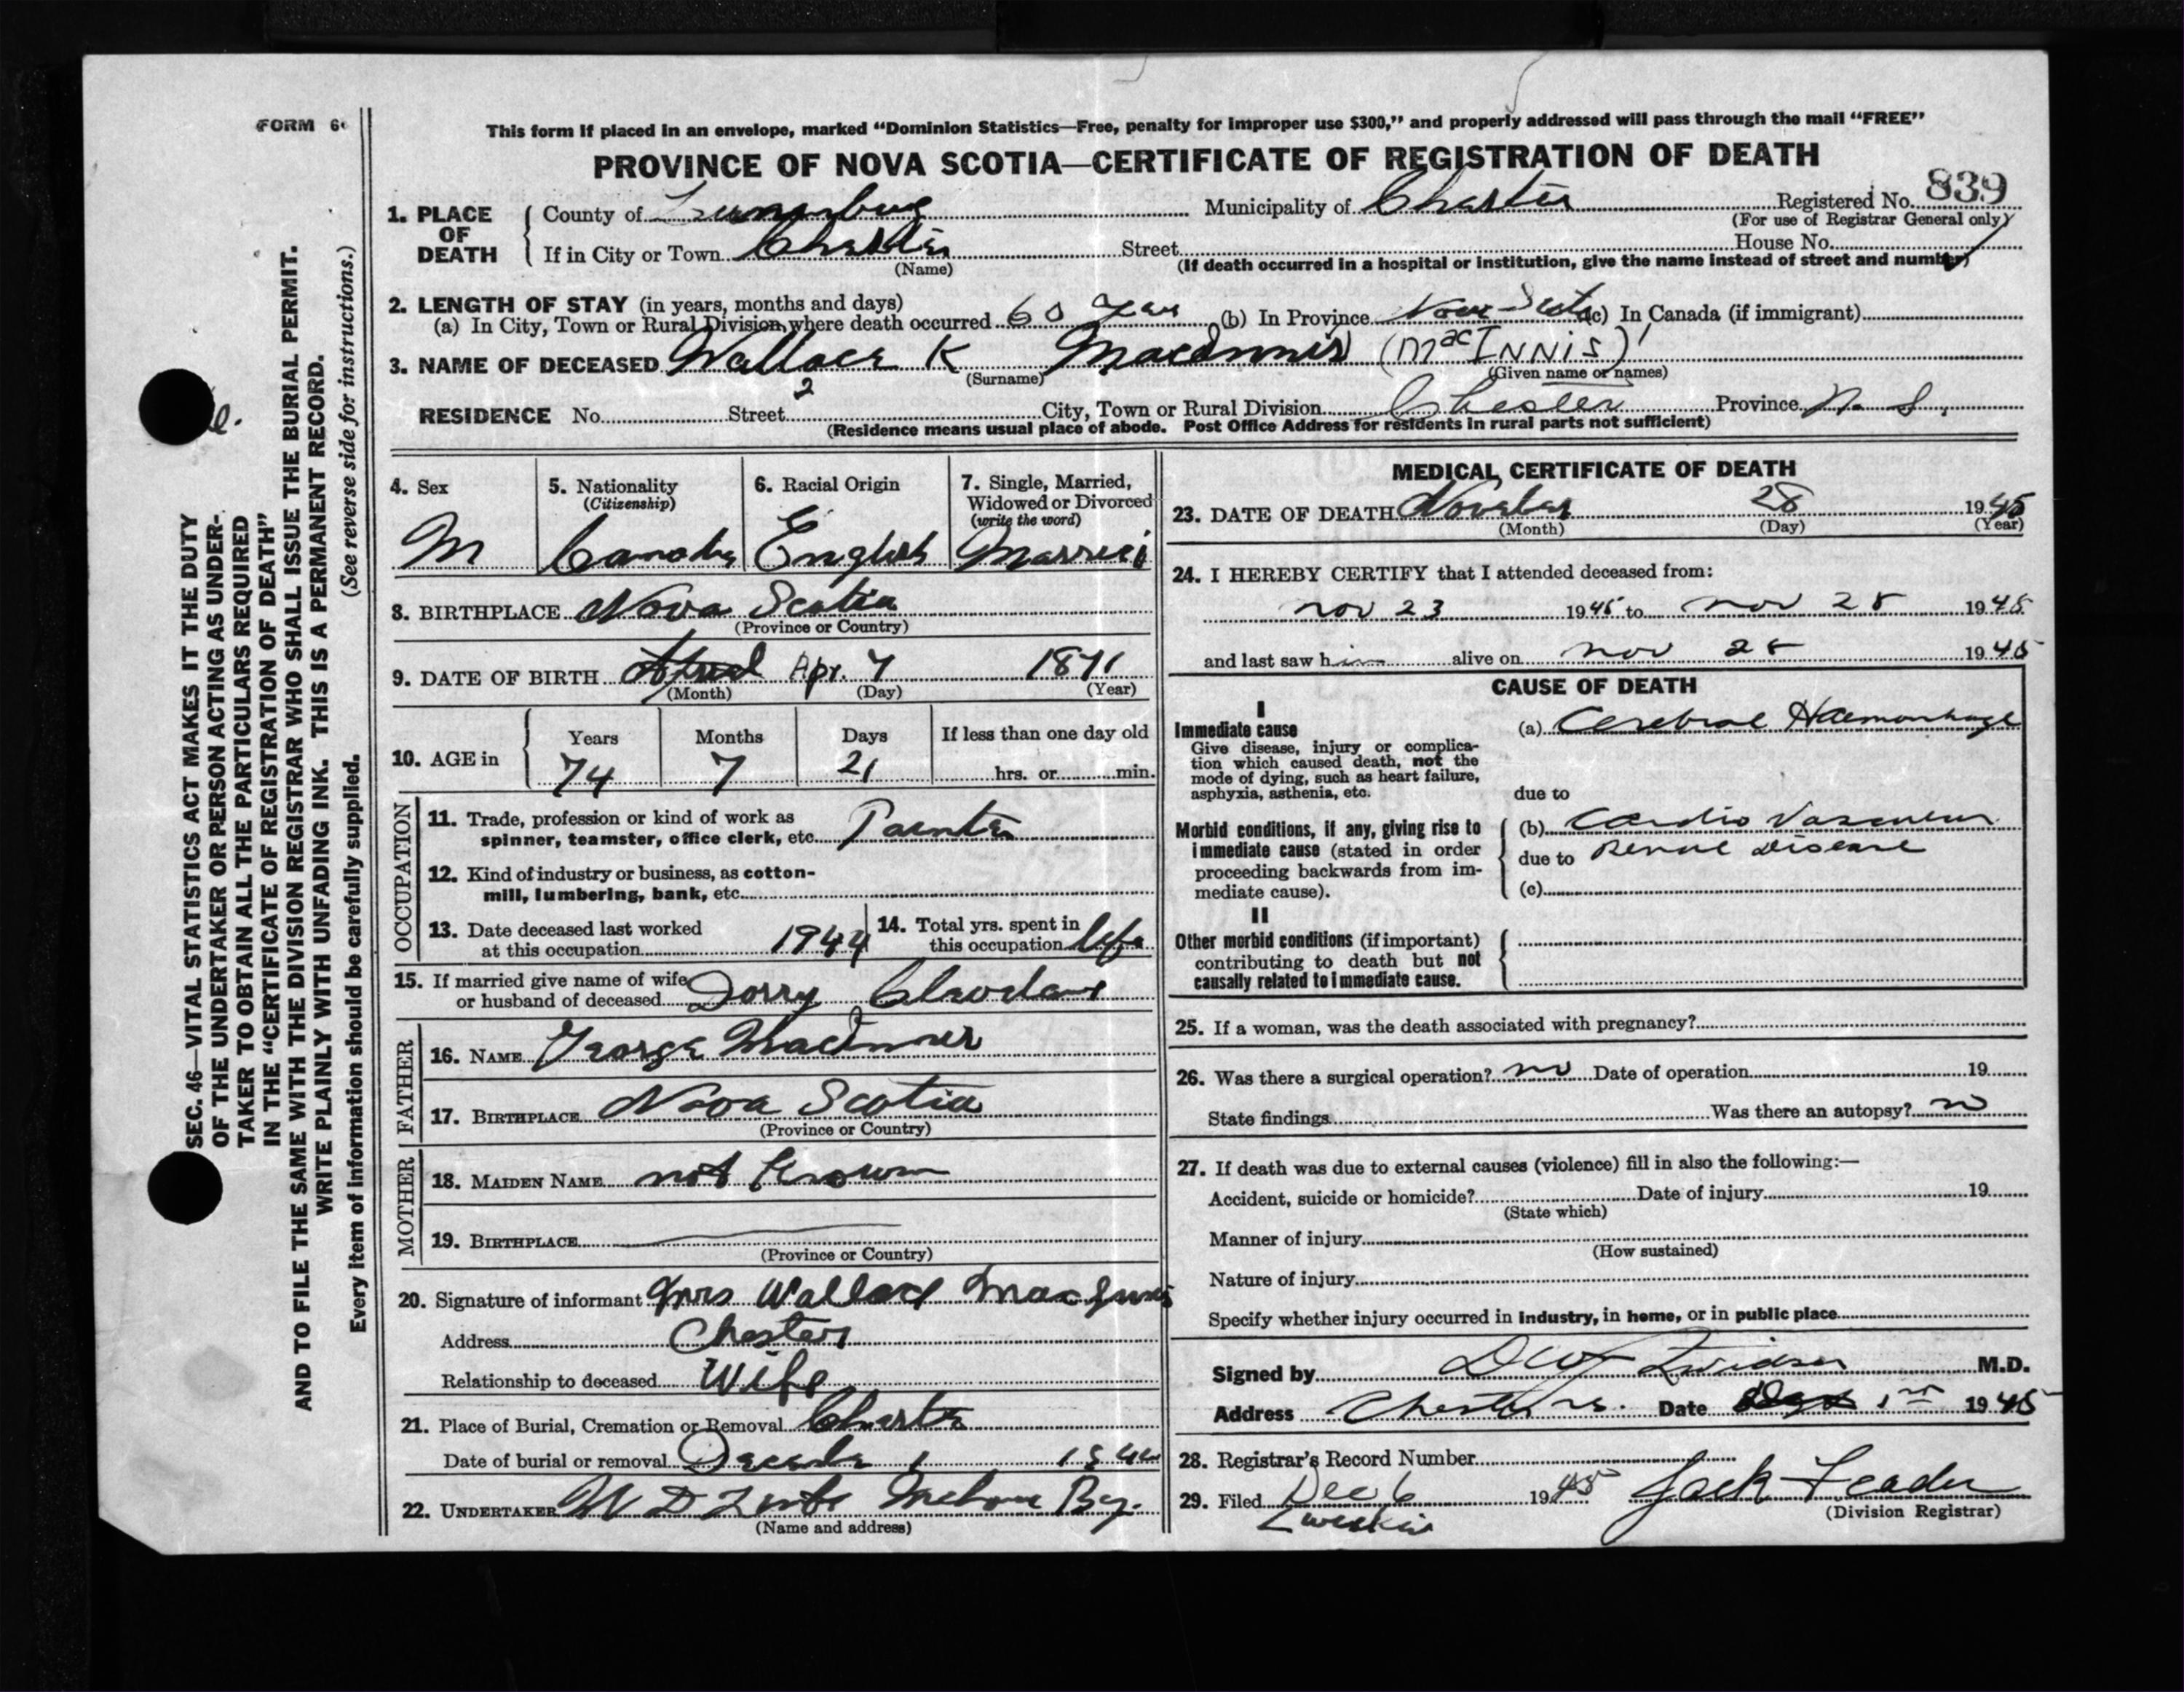 FORM 6
This form if placed in an envelope, marked “Dominion Statistics—Free, penalty for improper use $300,” and properly addressed will pass through the mail “FREE”
PROVINCE OF NOVA SCOTIA—CERTIFICATE OF REGISTRATION OF DEATH
1. PLACE OF DEATH
County of Lunenburg Municipality of Chester Registered No. 839
(For use of Registrar General only)
If in City or Town Chester Street House No.
(Name) (If death occurred in a hospital or institution, give the name instead of street and number)
2. LENGTH OF STAY (in years, months and days)
(a) In City, Town or Rural Division where death occurred 60 Years (b) In Province Nova Scotia (c) In Canada (if immigrant)
3. NAME OF DECEASED Wallace K MacInnis (MacINNIS)
(Surname) (Given name or names)
2
RESIDENCE No. Street City, Town or Rural Division Chester Province N. S.
(Residence means usual place of abode. Post Office Address for residents in rural parts not sufficient)
4. Sex
M
5. Nationality
(Citizenship)
Canada
6. Racial Origin
English
7. Single, Married,
Widowed or Divorced
(write the word)
Married
8. BIRTHPLACE Nova Scotia
(Province or Country)
9. DATE OF BIRTH April Apr. 7 1871
(Month) (Day) (Year)
10. AGE in
Years Months Days If less than one day old
74 7 21 hrs. or min.
OCCUPATION
11. Trade, profession or kind of work as
spinner, teamster, office clerk, etc. Painter
12. Kind of industry or business, as cotton-
mill, lumbering, bank, etc.
13. Date deceased last worked
at this occupation 1944
14. Total yrs. spent in
this occupation life
15. If married give name of wife
or husband of deceased Dorry
FATHER
16. NAME George MacInnis
17. BIRTHPLACE Nova Scotia
(Province or Country)
MOTHER
18. MAIDEN NAME not known
19. BIRTHPLACE
(Province or Country)
20. Signature of informant Mrs Wallace MacInnis
Address Chester
Relationship to deceased Wife
21. Place of Burial, Cremation or Removal Chester
Date of burial or removal December 1
22. UNDERTAKER W D
(Name and address)
MEDICAL CERTIFICATE OF DEATH
23. DATE OF DEATH November 28 1945
(Month) (Day) (Year)
24. I HEREBY CERTIFY that I attended deceased from:
Nov 23 1945 to Nov 28 1945
and last saw him alive on Nov 28 1945
CAUSE OF DEATH
I
Immediate cause
Give disease, injury or complica-
tion which caused death, not the
mode of dying, such as heart failure,
asphyxia, asthenia, etc.
(a) Cerebral Haemorrhage
due to
Morbid conditions, if any, giving rise to
immediate cause (stated in order
proceeding backwards from im-
mediate cause).
(b) Cardio Vascular
due to Renal Disease
(c)
II
Other morbid conditions (if important)
contributing to death but not
causally related to immediate cause.
25. If a woman, was the death associated with pregnancy?
26. Was there a surgical operation? no Date of operation 19
State findings Was there an autopsy? no
27. If death was due to external causes (violence) fill in also the following:—
Accident, suicide or homicide? Date of injury 19
(State which)
Manner of injury
(How sustained)
Nature of injury
Specify whether injury occurred in industry, in home, or in public place
Signed by M.D.
Address Chester N.S. Date 1st 1945
28. Registrar's Record Number
29. Filed Dec 6 1945 Jack
(Division Registrar)
SEC. 46—VITAL STATISTICS ACT MAKES IT THE DUTY
OF THE UNDERTAKER OR PERSON ACTING AS UNDER-
TAKER TO OBTAIN ALL THE PARTICULARS REQUIRED
IN THE “CERTIFICATE OF REGISTRATION OF DEATH”
AND TO FILE THE SAME WITH THE DIVISION REGISTRAR WHO SHALL ISSUE THE BURIAL PERMIT.
WRITE PLAINLY WITH UNFADING INK. THIS IS A PERMANENT RECORD.
Every item of information should be carefully supplied. (See reverse side for instructions.)